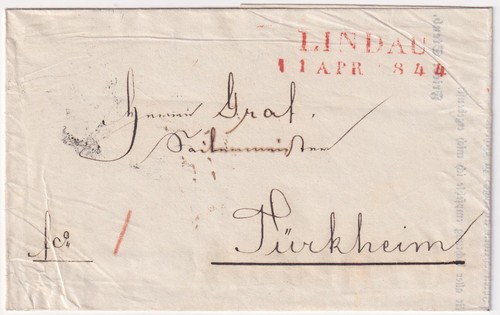 LINDAU
11 APR 844
Herrn Graf,
Seilermeister
fco
Türkheim